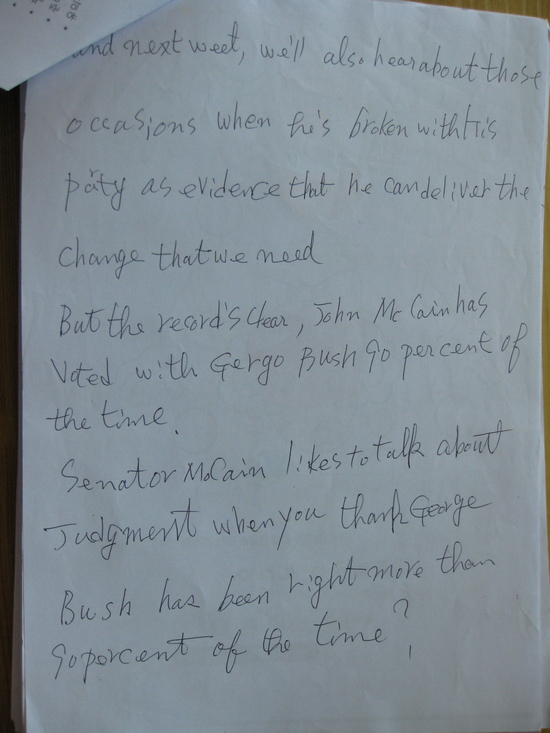 and next weet, we'll also hear about those
occasions when he's broken with His
party as evidence that he can deliver the
change that we need
But the record's clear, John McCain has
Voted with Gergo Bush 90 percent of
the time.
Senator McCain likes to talk about
Judgment when you thank George
Bush has been right more than
90 percent of the time?